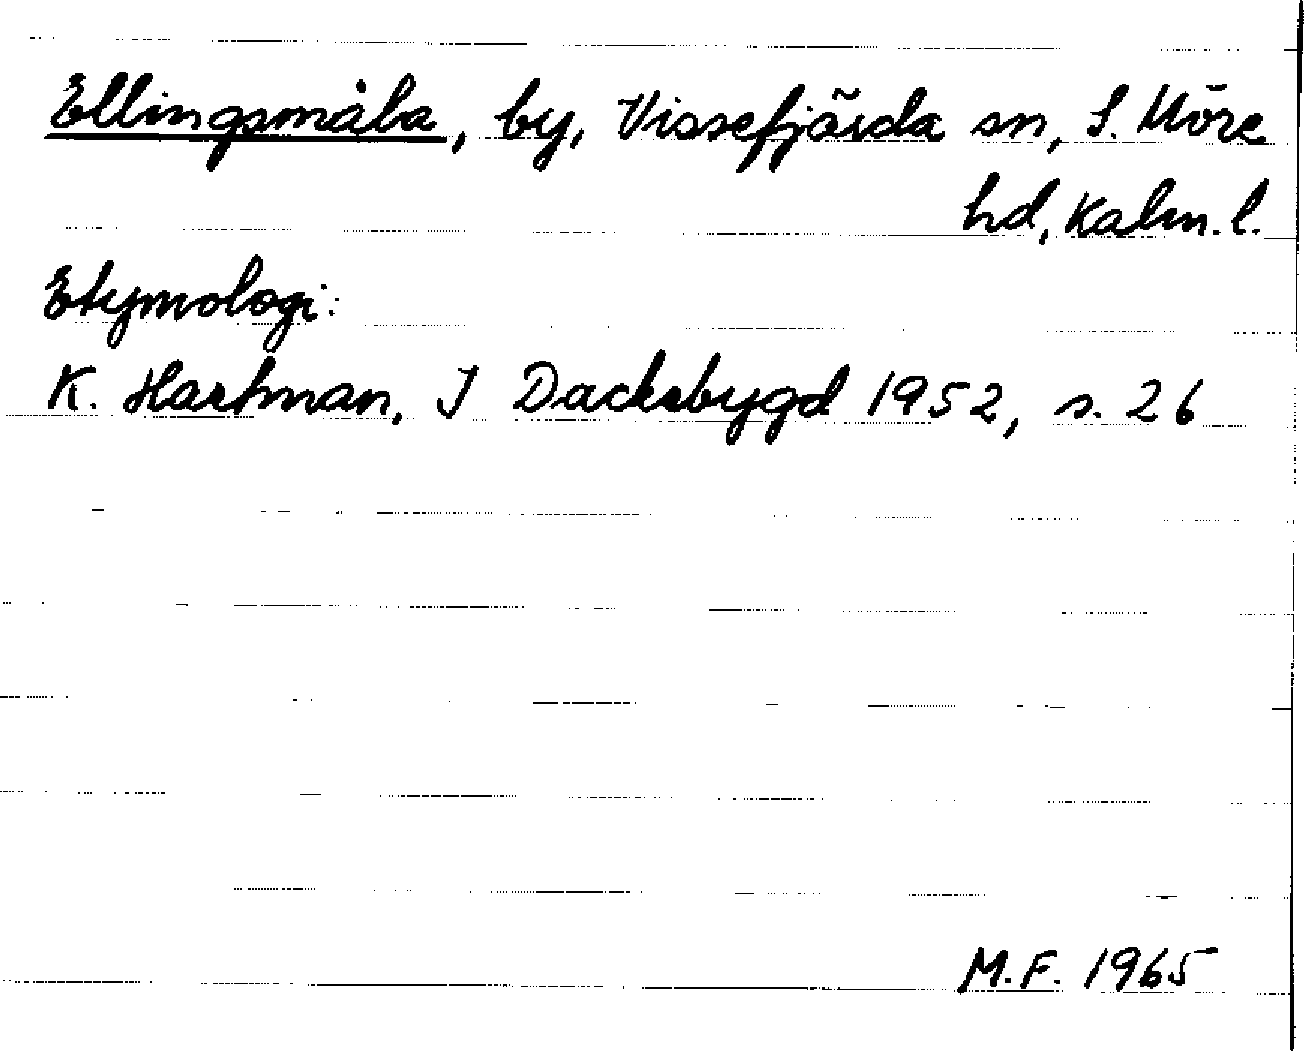 Ellingsmåla, by, Vissefjärda sn, S. Möre
hd, Kalm. l.
Etymologi:
K. Hartman, I Dackebygd 1952, s. 26
M.F. 1965